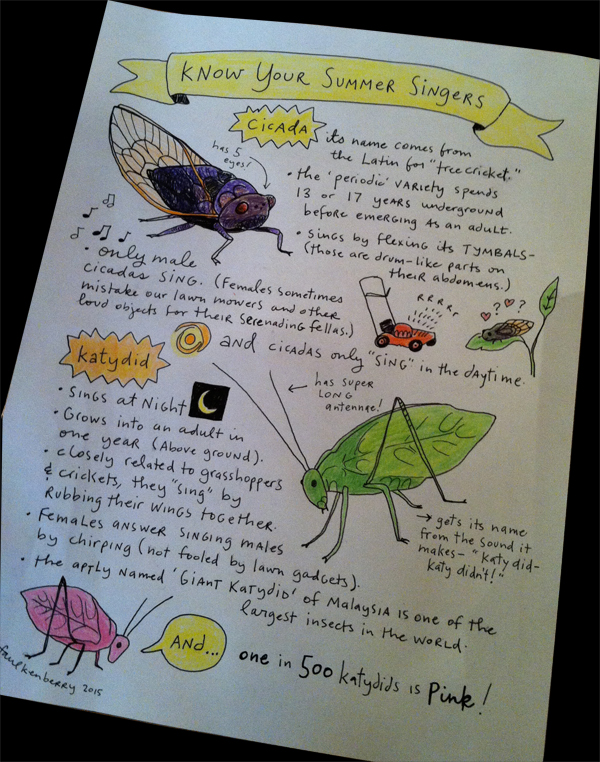 Know Your Summer Singers
Cicada
has 5
eyes!
its name comes from
the Latin for "tree cricket."
• the 'periodic' variety spends
13 or 17 years underground
before emerging as an adult.
• Sings by flexing its TYMBALS-
(those are drum-like parts on
their abdomens.)
• only male
cicadas sing. (Females sometimes
mistake our lawn mowers and other
loud objects for their serenading fellas.)
RRRRr
? ?
and cicadas only "sing" in the daytime.
Katydid
• Sings at Night
• Grows into an adult in
one year (above ground).
• closely related to grasshoppers
& crickets, they "sing" by
rubbing their wings together.
• Females answer singing males
by chirping (not fooled by lawn gadgets).
• The aptly named 'Giant Katydid' of Malaysia is one of the
largest insects in the world.
← has super
long
antennae!
→ gets its name
from the sound it
makes- "Katy did-
Katy didn't!"
And...
one in 500 katydids is Pink!
faulkenberry 2015